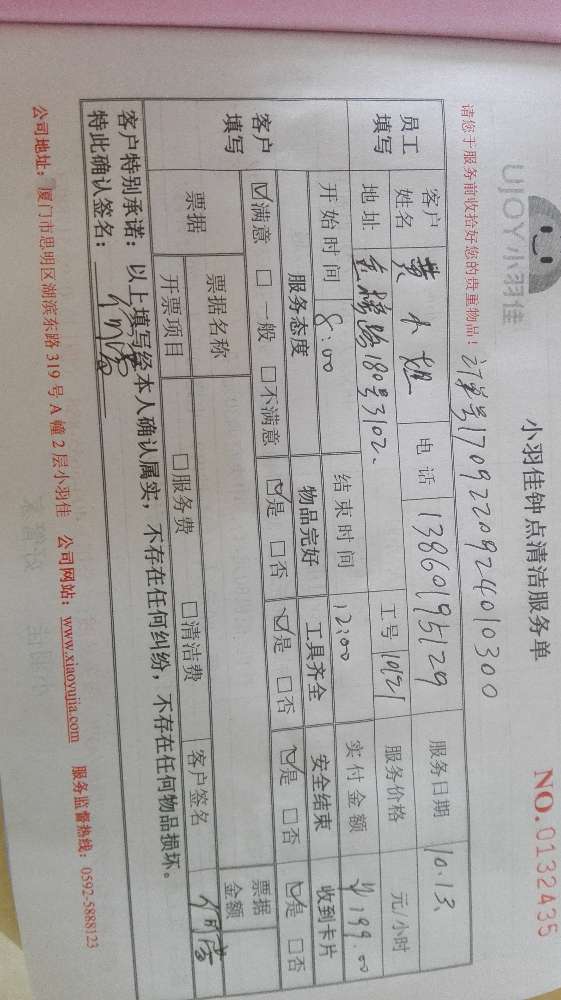 UJOY小羽佳
小羽佳钟点清洁服务单
NO.0132435
请您于服务前收拾好您的贵重物品！
订单号170922092401 0300
员工填写
客户姓名 黄小姐 电话 13860195129 服务日期 10.13、
地址 180号3102、 工号 10121 服务价格 元/小时
开始时间 8:00 结束时间 12:00 实付金额 ¥199.00
客户填写
服务态度 物品完好 工具齐全 安全结束 收到卡片
☑满意 □一般 □不满意 ☑是 □否 ☑是 □否 ☑是 □否 ☑是 □否
票据 票据名称 票据金额
开票项目 □服务费 □清洁费 客户签名
客户特别承诺：以上填写经本人确认属实，不存在任何纠纷，不存在任何物品损坏。
特此确认签名：
公司地址：厦门市思明区湖滨东路319号A幢2层小羽佳 公司网站：www.xiaoyujia.com 服务监督热线：0592-5888123